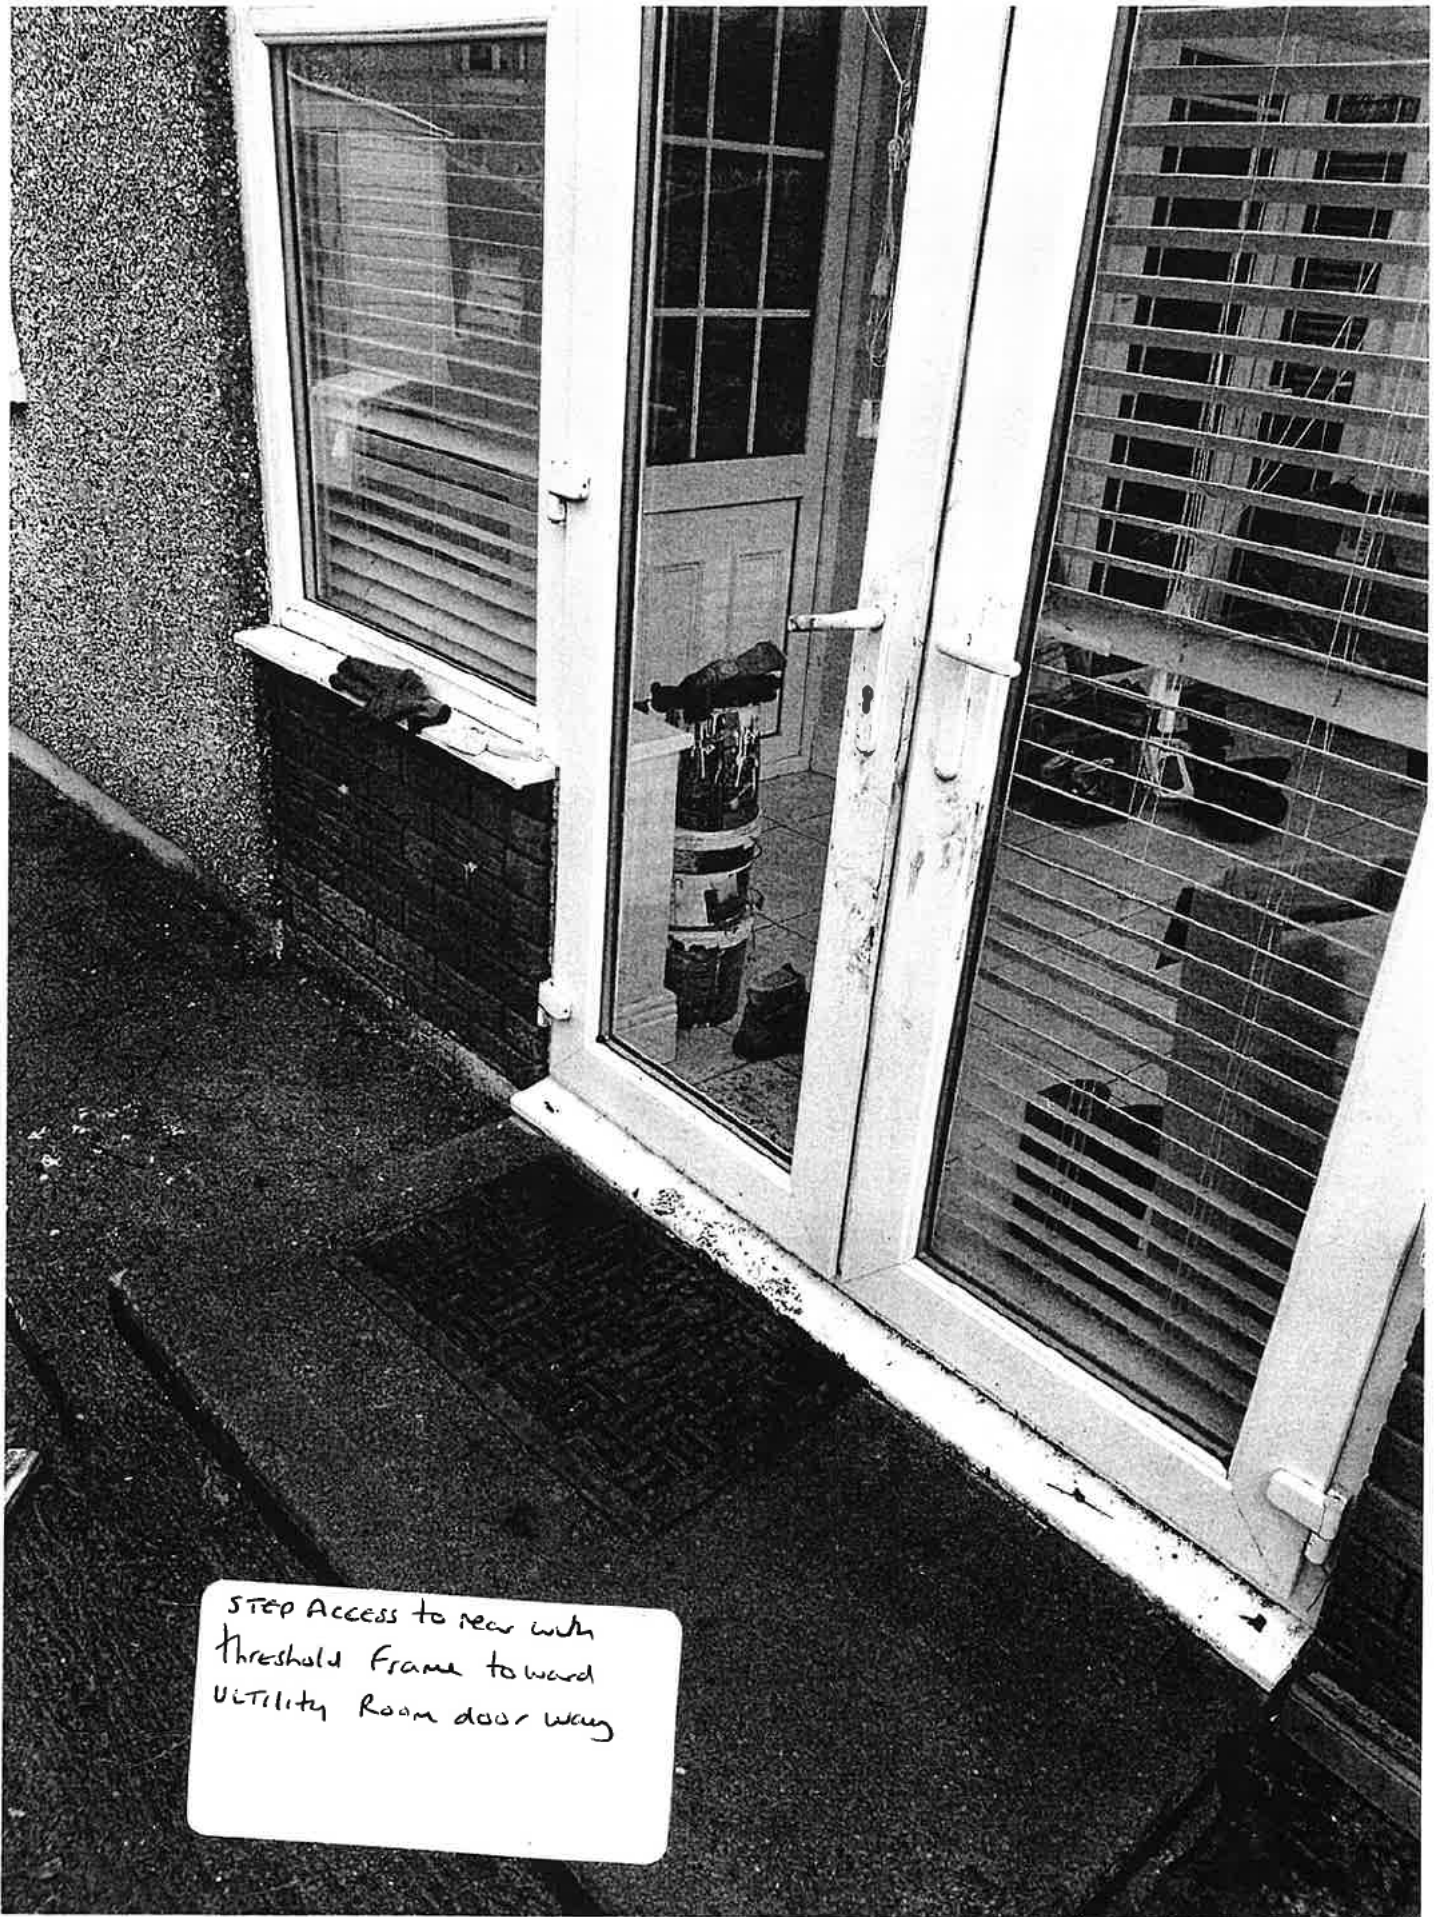 STEP ACCESS to rear with
threshold Frame toward
UTILity Room door way